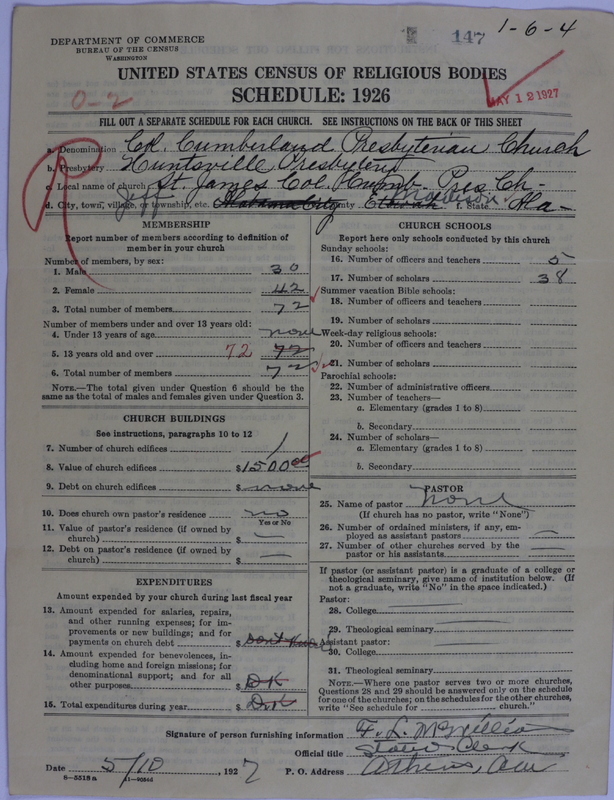 1-6-4
147
DEPARTMENT OF COMMERCE
BUREAU OF THE CENSUS
WASHINGTON
UNITED STATES CENSUS OF RELIGIOUS BODIES
SCHEDULE: 1926
0-2
MAY 12 1927
FILL OUT A SEPARATE SCHEDULE FOR EACH CHURCH. SEE INSTRUCTIONS ON THE BACK OF THIS SHEET
a. Denomination Col. Cumberland Presbyterian Church
b. Presbytery Huntsville Presbytery
c. Local name of church St. James Col. Cumb. Pres. Ch.
d. City, town, village, or township, etc. Jeff Alabama City County Etowah Madison f. State Ala-
R
MEMBERSHIP
Report number of members according to definition of member in your church
Number of members, by sex:
1. Male 30
2. Female 42
3. Total number of members 72
Number of members under and over 13 years old:
4. Under 13 years of age none
5. 13 years old and over 72 72
6. Total number of members 72
NOTE.—The total given under Question 6 should be the
same as the total of males and females given under Question 3.
CHURCH BUILDINGS
See instructions, paragraphs 10 to 12
7. Number of church edifices 1
8. Value of church edifices $1500.00
9. Debt on church edifices $ none
10. Does church own pastor's residence no
Yes or No
11. Value of pastor's residence (if owned by
church) $ —
12. Debt on pastor's residence (if owned by
church) $ —
EXPENDITURES
Amount expended by your church during last fiscal year
13. Amount expended for salaries, repairs,
and other running expenses; for im-
provements or new buildings; and for
payments on church debt $ Dont Know
14. Amount expended for benevolences, in-
cluding home and foreign missions; for
denominational support; and for all
other purposes $ DK
15. Total expenditures during year $ DK
CHURCH SCHOOLS
Report here only schools conducted by this church
Sunday schools:
16. Number of officers and teachers 5
17. Number of scholars 38
Summer vacation Bible schools:
18. Number of officers and teachers
19. Number of scholars
Week-day religious schools:
20. Number of officers and teachers
21. Number of scholars
Parochial schools:
22. Number of administrative officers
23. Number of teachers—
a. Elementary (grades 1 to 8)
b. Secondary
24. Number of scholars—
a. Elementary (grades 1 to 8)
b. Secondary
PASTOR
25. Name of pastor none
(If church has no pastor, write "None")
26. Number of ordained ministers, if any, em-
ployed as assistant pastors —
27. Number of other churches served by the
pastor or his assistants —
If pastor (or assistant pastor) is a graduate of a college or
theological seminary, give name of institution below. (If
not a graduate, write "No" in the space indicated.)
Pastor:
28. College
29. Theological seminary
Assistant pastor:
30. College
31. Theological seminary
NOTE.—Where one pastor serves two or more churches,
Questions 28 and 29 should be answered only on the schedule
for one of the churches; on the schedules for the other churches,
write "See schedule for church."
Signature of person furnishing information F. L. McWilliams
Official title Stated Clerk
Date 5/10, 1927 P. O. Address Athens, Ala
8-5518 a